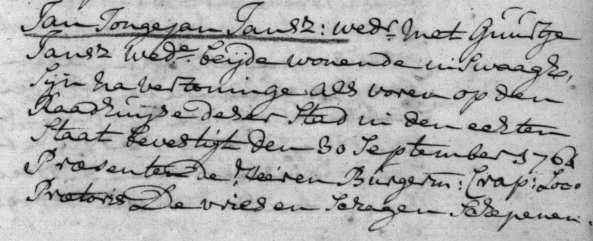 Jan Jongejan Jansz: wedr. met Guurtje
Jansz wede. beijde wonende in Swaagh,
Zijn na vertoninge als voren op den
Raadhuijse deser Stad in den echten
Staat bevestigt den 30 September 1764
Præsenten de Heeren Burgerm: Crap: Loco
Prætoris De vries en Schagen Schepenen.